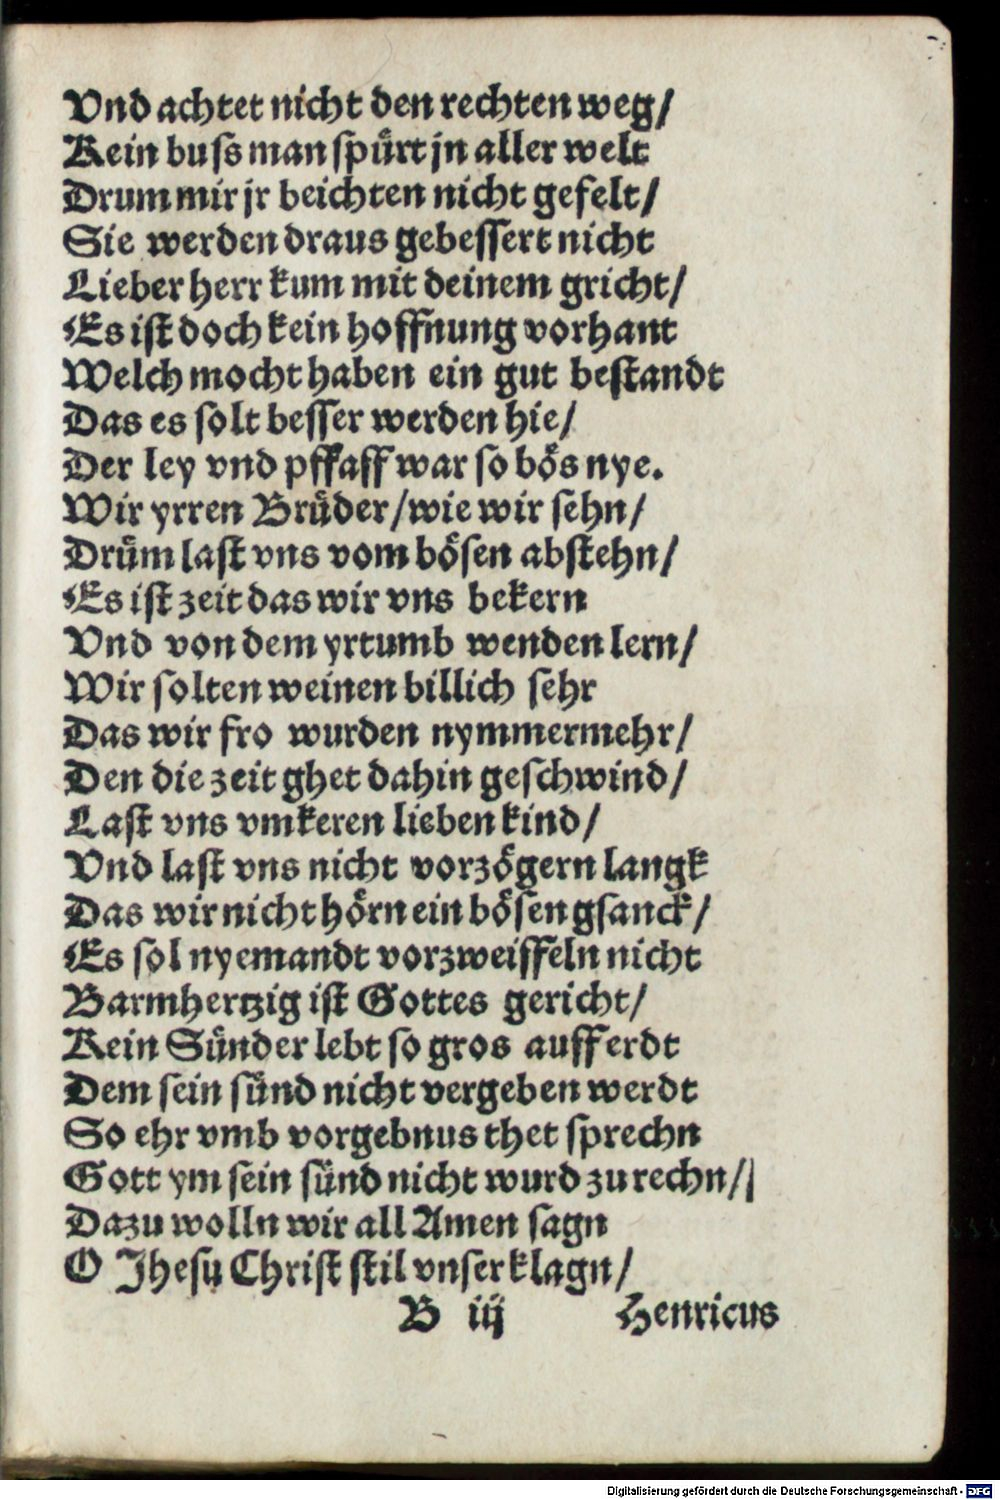 Vnd achtet nicht den rechten weg/
Kein buſs man ſpuͤrt jn aller welt
Drum mir jr beichten nicht gefelt/
Sie werden draus gebeſſert nicht
Lieber herr kum mit deinem gricht/
Es iſt doch kein hoffnung vorhant
Welch mocht haben ein gut beſtandt
Das es ſolt beſſer werden hie/
Der ley vnd pffaff war ſo boͤs nye.
Wir yrren Bruͤder/wie wir ſehn/
Druͤm laſt vns vom boͤſen abſtehn/
Es iſt zeit das wir vns bekern
Vnd von dem yrtumb wenden lern/
Wir ſolten weinen billich ſehr
Das wir fro wurden nymmermehr/
Den die zeit ghet dahin geſchwind/
Laſt vns vmkeren lieben kind/
Vnd laſt vns nicht vorzoͤgern langk
Das wir nicht hoͤrn ein boͤſen gſanck/
Es ſol nyemandt vorzweiffeln nicht
Barmhertzig iſt Gottes gericht/
Kein Suͤnder lebt ſo gros auff erdt
Dem ſein ſuͤnd nicht vergeben werdt
So ehr vmb vorgebnus thet ſprechn
Gott ym ſein ſuͤnd nicht wurd zu rechn/
Dazu wolln wir all Amen ſagn
O Jheſu Chriſt ſtil vnſer klagn/
B iij Henricus
Digitalisierung gefördert durch die Deutsche Forschungsgemeinschaft - DFG